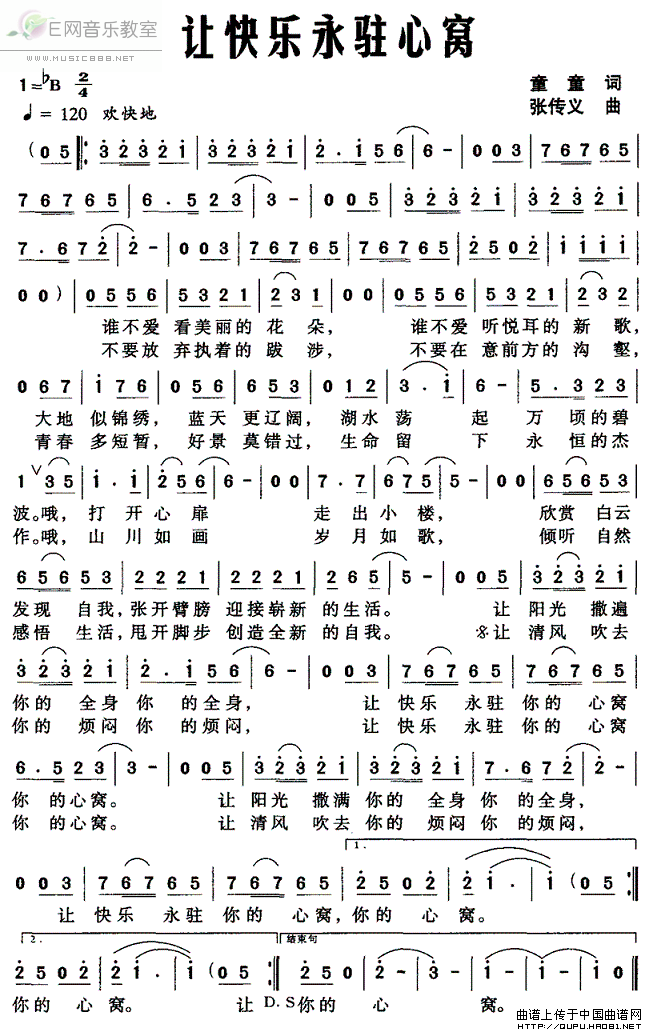 E网音乐教室
www.music888.net
让快乐永驻心窝
1=♭B 2/4
童童 词
♩=120 欢快地
张传义 曲
(05 ‖: 3232 | 3232i | 2·156 | 6- | 003 | 76765 |
76765 | 6·523 | 3- | 005 | 32321 | 32321 |
7·672 | 2- | 003 | 76765 | 76765 | 2502 | 1111 |
00) | 0556 | 5321 | 231 | 00 | 0556 | 5321 | 232 |
谁不爱 看美丽的 花 朵, 谁不爱 听悦耳的 新 歌,
不要放 弃执着的 跋 涉, 不要在 意前方的 沟 壑,
067 | 176 | 056 | 653 | 012 | 3·1 | 6- | 5·323 |
大地 似锦绣, 蓝天 更辽阔, 湖水 荡 起 万 顷的碧
青春 多短暂, 好景 莫错过, 生命 留 下 永 恒的杰
1 ∨ 35 | 1·1 | 256 | 6- | 00 | 7·7 | 675 | 5- | 00 | 65653 |
波。哦, 打 开 心 扉 走 出 小 楼, 欣赏 白云
作。哦, 山 川 如 画 岁 月 如 歌, 倾听 自然
65653 | 2221 | 2221 | 265 | 5- | 005 | 32321 |
发现 自我, 张开臂膀 迎接崭新 的生活。 让 阳光 撒遍
感悟 生活, 甩开脚步 创造全新 的自我。 𝄋让 清风 吹去
32321 | 2·156 | 6- | 003 | 76765 | 76765 |
你的 全身 你 的全身, 让 快乐 永驻 你的 心窝
你的 烦闷 你 的烦闷, 让 快乐 永驻 你的 心窝
6·523 | 3- | 005 | 32321 | 32321 | 7·672 | 2- |
你 的心窝。 让 阳光 撒满 你的 全身 你 的全身,
你 的心窝。 让 清风 吹去 你的 烦闷 你 的烦闷,
1.
003 | 76765 | 76765 | 2502 | 2502 | 21· | 1 (05 :‖
让 快乐 永驻 你的 心窝, 你的 心 窝。
2. 结束句
2502 | 21·1 | (05) | 2502 | 2- | 1- | 1- | 10 ‖
你的 心 窝。 让 D.S 你的 心 窝。
曲谱上传于中国曲谱网
http://QUPU.HAO81.NET